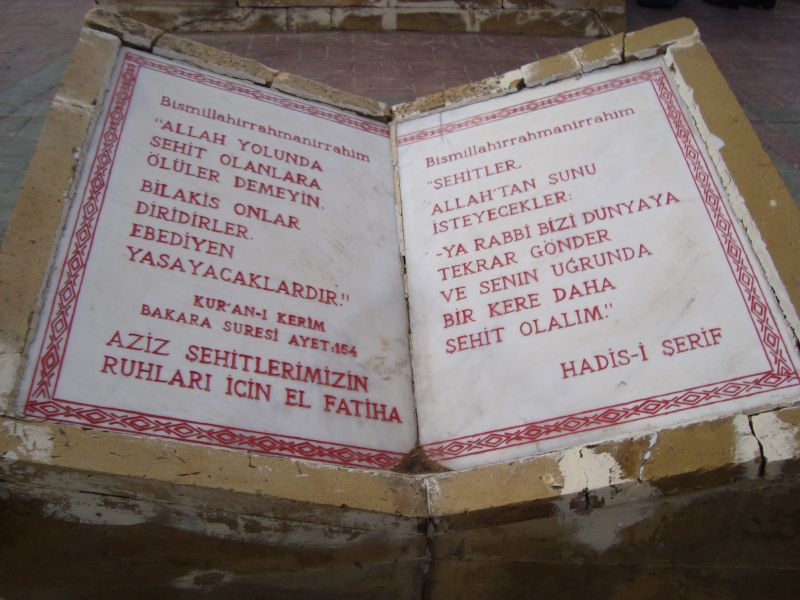 Bismillahirrahmanirrahim
"ALLAH YOLUNDA
ŞEHİT OLANLARA
ÖLÜLER DEMEYİN.
BİLAKİS ONLAR
DİRİDİRLER.
EBEDİYEN
YAŞAYACAKLARDIR."
KUR'AN-I KERİM
BAKARA SURESİ AYET:154
AZİZ ŞEHİTLERİMİZİN
RUHLARI İÇİN EL FATİHA
Bismillahirrahmanirrahim
"ŞEHİTLER,
ALLAH'TAN ŞUNU
İSTEYECEKLER:
-YA RABBİ BİZİ DÜNYAYA
TEKRAR GÖNDER
VE SENİN UĞRUNDA
BİR KERE DAHA
ŞEHİT OLALIM."
HADİS-İ ŞERİF